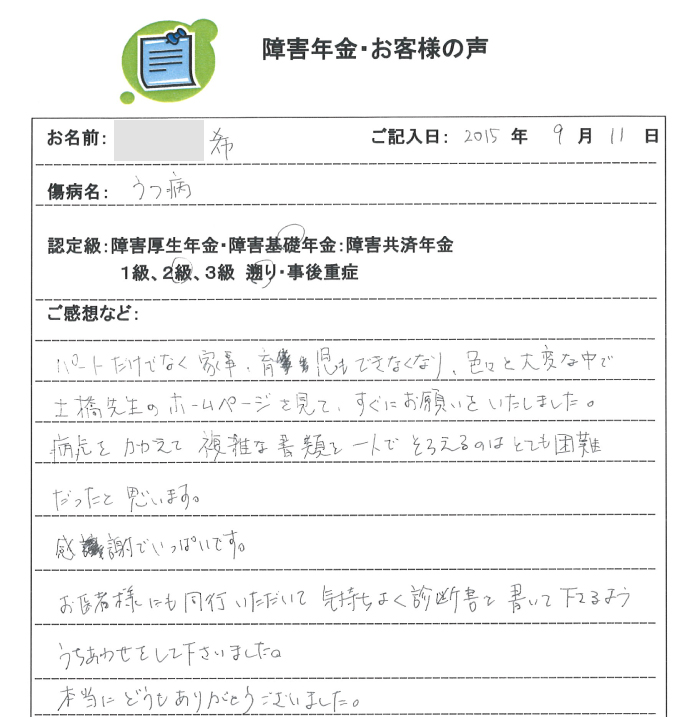 障害年金・お客様の声
お名前: 希 ご記入日: 2015 年 9 月 11 日
傷病名: うつ病
認定級:障害厚生年金・障害基礎年金:障害共済年金
1級、2級、3級 遡り・事後重症
ご感想など:
パートだけでなく家事、育児もできなくなり、色々と大変な中で
土橋先生のホームページを見て、すぐにお願いをいたしました。
病気をかかえて複雑な書類を一人でそろえるのはとても困難
だったと思います。
感謝でいっぱいです。
お医者様にも同行いただいて気持ちよく診断書を書いて下さるよう
うちあわせをして下さいました。
本当にどうもありがとうございました。